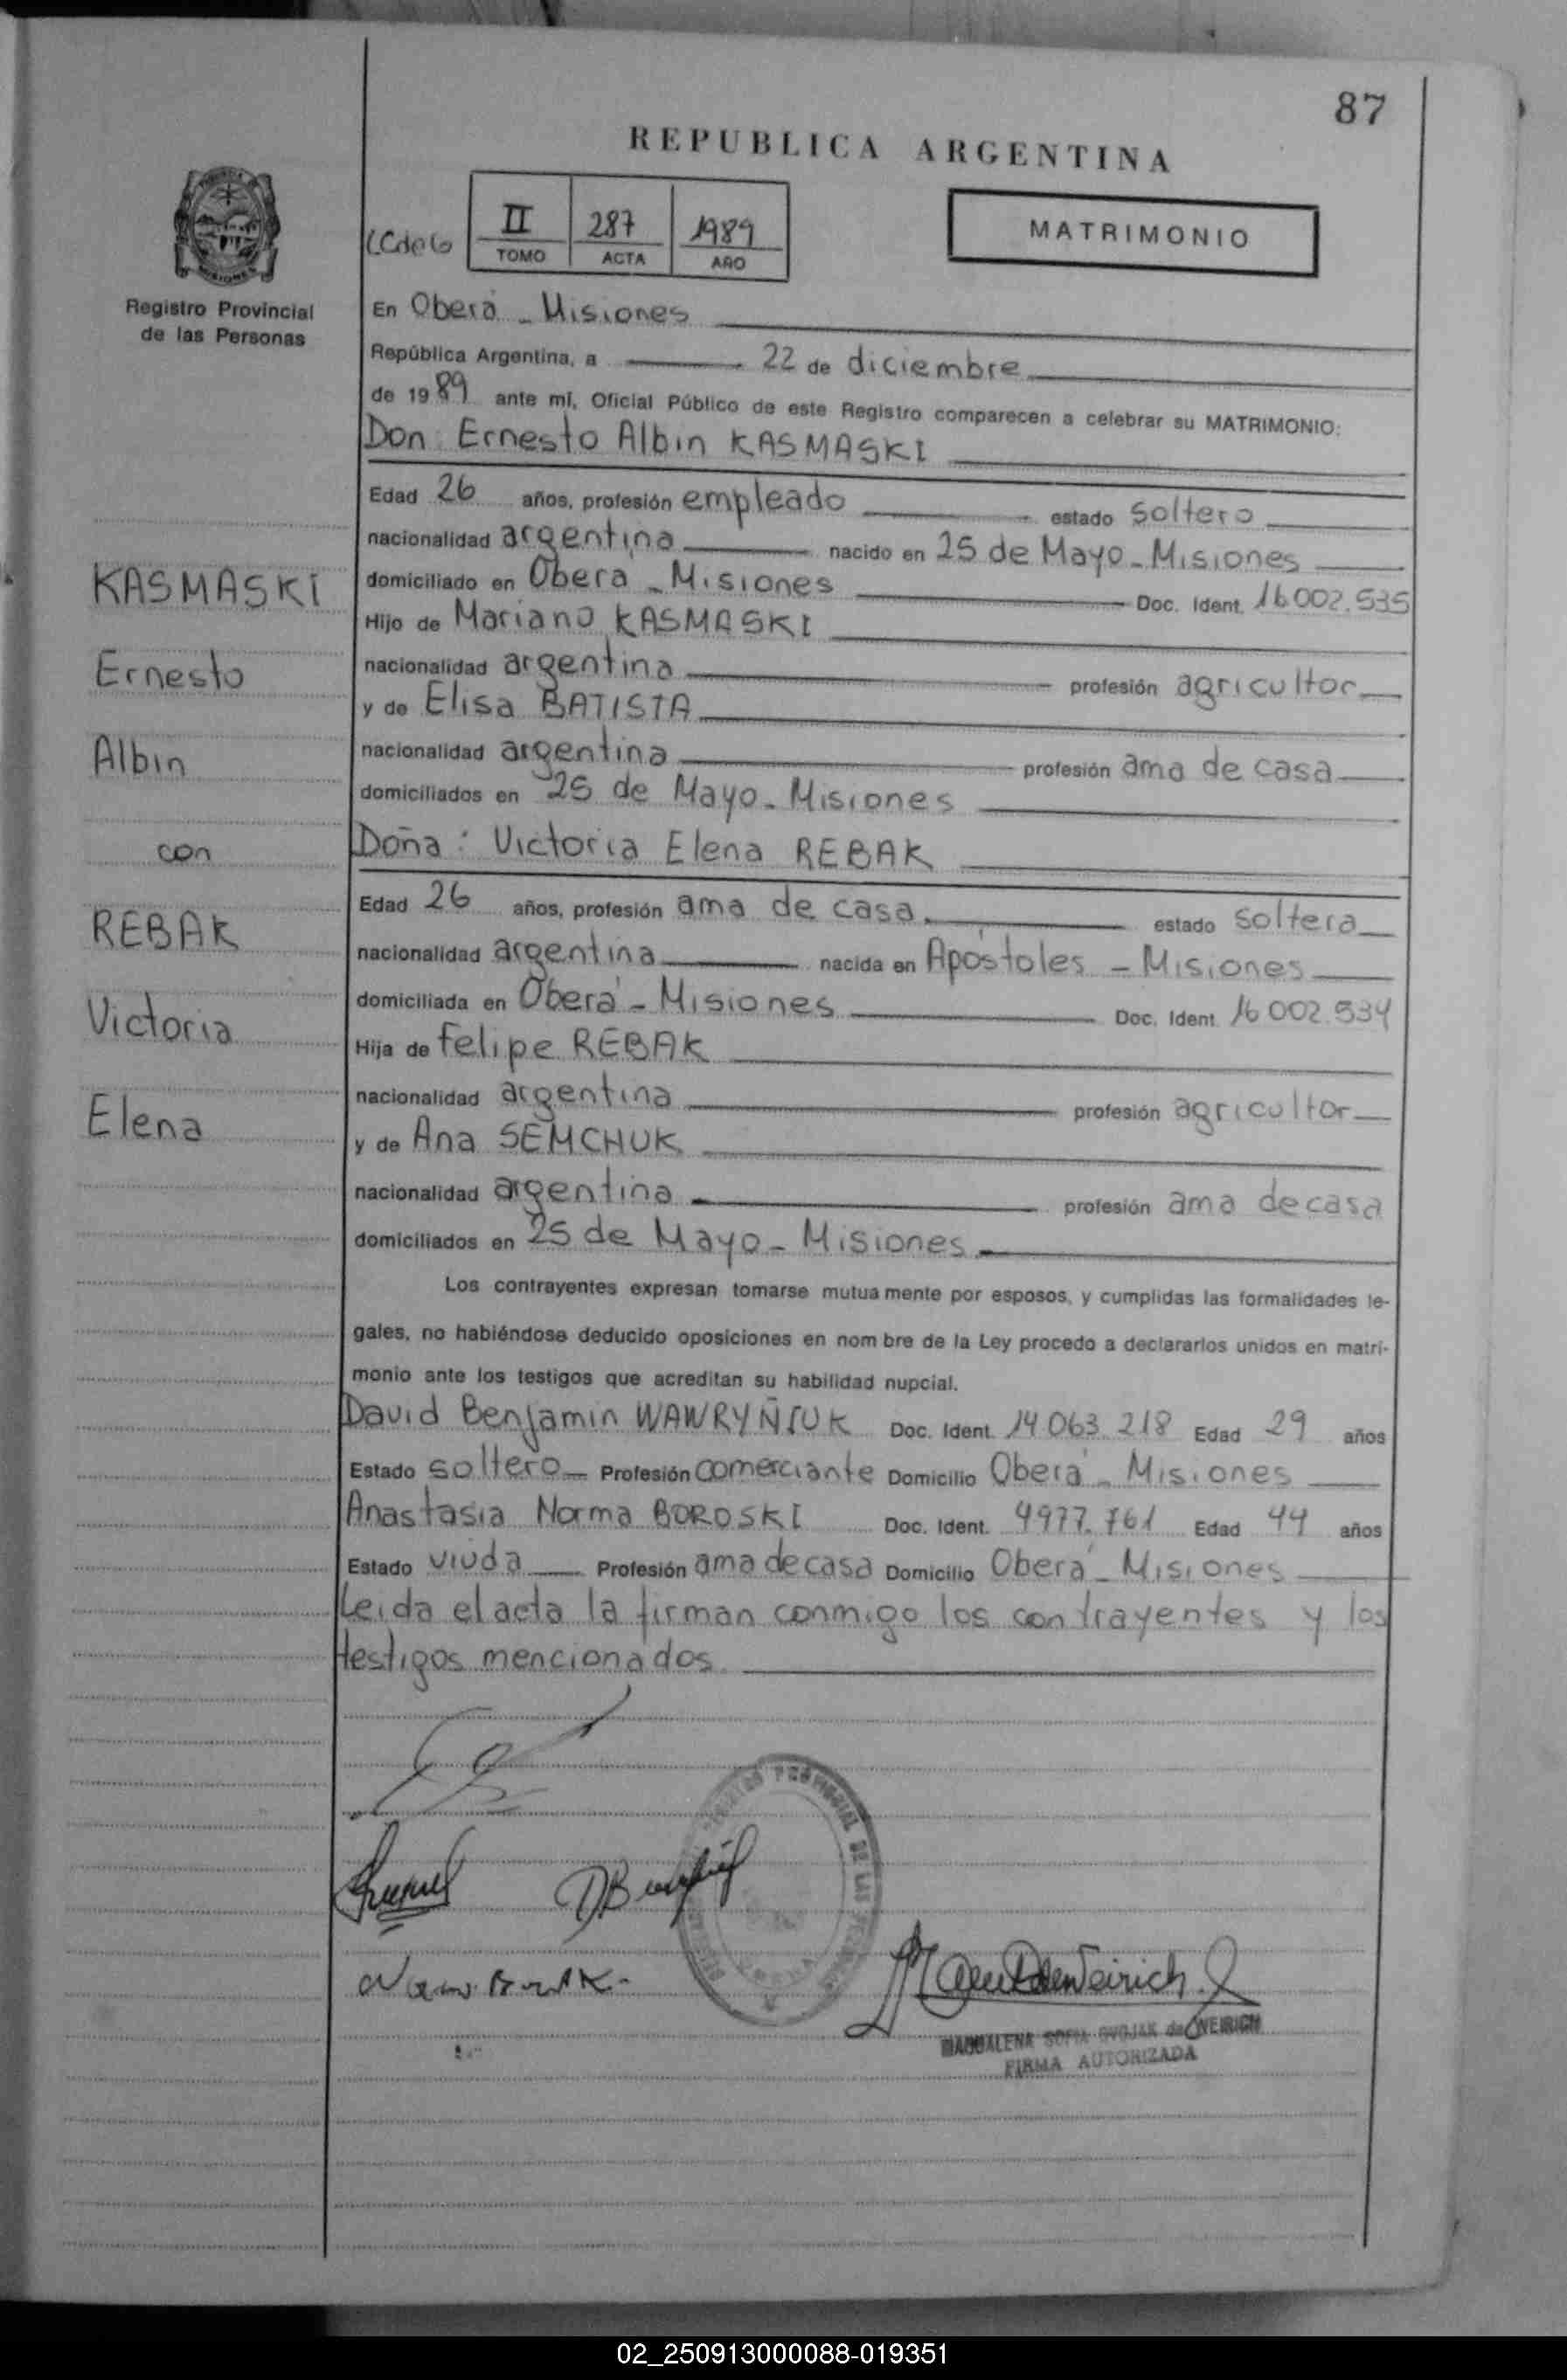 87
REPUBLICA ARGENTINA
II 287 1989
TOMO ACTA AÑO
MATRIMONIO
Registro Provincial
de las Personas
En Oberá - Misiones
República Argentina, a 22 de diciembre
de 1989 ante mí, Oficial Público de este Registro comparecen a celebrar su MATRIMONIO:
Don: Ernesto Albin KASMASKI
Edad 26 años, profesión empleado estado soltero
nacionalidad argentina nacido en 25 de Mayo - Misiones
KASMASKI
domiciliado en Oberá - Misiones Doc. Ident. 16.002.535
Hijo de Mariano KASMASKI
Ernesto
nacionalidad argentina profesión agricultor
y de Elisa BATISTA
Albin
nacionalidad argentina profesión ama de casa
domiciliados en 25 de Mayo - Misiones
con
Doña: Victoria Elena REBAK
Edad 26 años, profesión ama de casa. estado soltera
REBAK
nacionalidad argentina nacida en Apóstoles - Misiones
Victoria
domiciliada en Oberá - Misiones Doc. Ident. 16.002.534
Hija de Felipe REBAK
Elena
nacionalidad argentina profesión agricultor
y de Ana SEMCHUK
nacionalidad argentina profesión ama de casa
domiciliados en 25 de Mayo - Misiones
Los contrayentes expresan tomarse mutuamente por esposos, y cumplidas las formalidades le-
gales, no habiéndose deducido oposiciones en nombre de la Ley procedo a declararlos unidos en matri-
monio ante los testigos que acreditan su habilidad nupcial.
David Benjamin WAWRYÑIUK Doc. Ident. 14.063.218 Edad 29 años
Estado soltero Profesión comerciante Domicilio Oberá - Misiones
Anastasia Norma BOROSKI Doc. Ident. 4977.761 Edad 44 años
Estado viuda Profesión ama de casa Domicilio Oberá - Misiones
Leida el acta la firman conmigo los contrayentes y los
testigos mencionados.
PROVINCIAL DE LAS PERSONAS
MAGDALENA SOFIA de WEIRICH
FIRMA AUTORIZADA
02_250913000088-019351